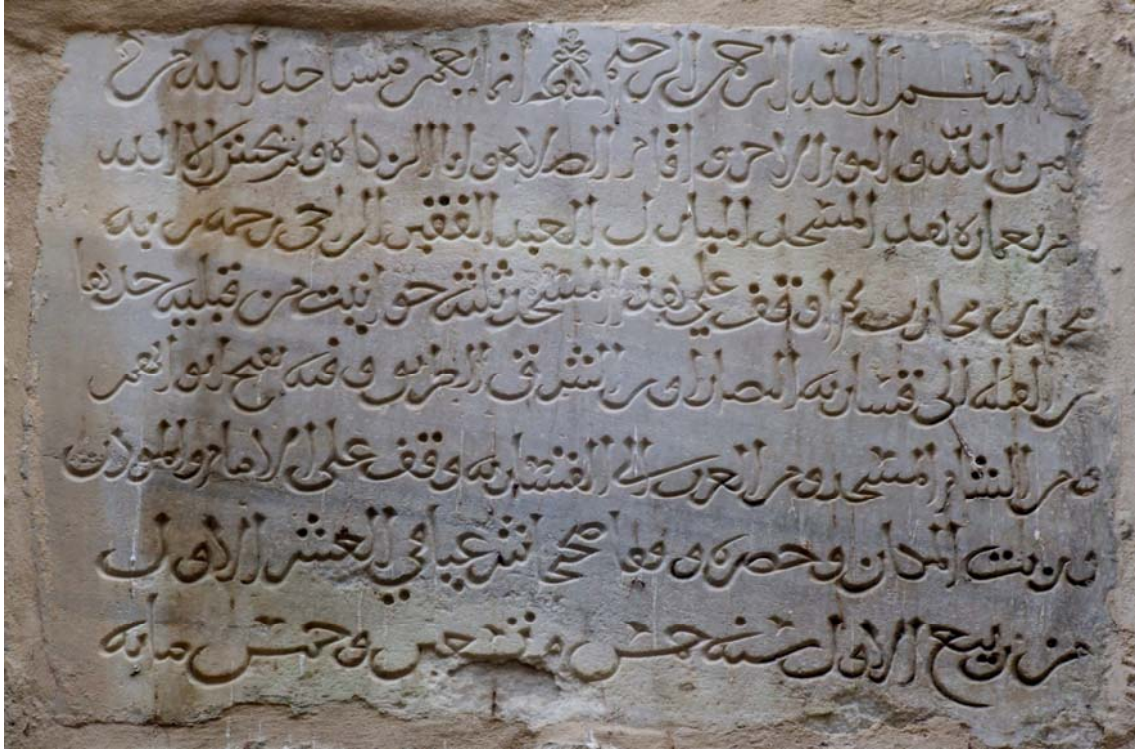 بسم الله الرحمن الرحيم انما يعمر مساجد الله من
امن بالله واليوم الاخر واقام الصلاه واتا الزكاه ولم يخش الا الله
امر بعماره هذا المسجد المبارك العبد الفقير الراجي رحمه ربه
محمد بن محارب وقف علي هذا المسجد ثلثه حوانيت من قبليه حدها
من القبله الى قساريه ومن الشرق الطريق وفيه يفتح ابوابهم
ومن الشام المسجد ومن الغرب الى القيساريه وقف على الامام والموذن
وزيت المكان وحصره وقفا صحيحا شرعيا في العشر الاول
من ربيع الاول سنه خمس وتسعين وخمس مايه